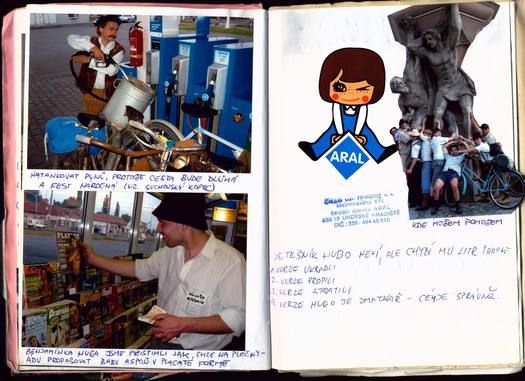 NATANKOVAT PLNŮ, PROTOŽE CESTA BUDE DLÚHÁ
A FEST NÁROČNÁ (VIZ. SUCHOVSKÝ KOPEC)
BENJAMÍNKA HUGA JSME PŘISTIHLI JAK CHCE NA PLEČKY-
ADU PROPAŠOVAT BABU ASPOŇ V PLACATÉ FORMĚ
ARAL
ARAL
686 10 UHERSKÉ HRADIŠTĚ
KDE MOŽEM POMOŽEM
HUGO NEVÍ, ALE CHYBÍ MU LITR
1. VERZE UKRADLI
2. VERZE PROPILI
3. VERZE ZTRATILI
4. VERZE HUGO JE ZMATKAŘ - SPRÁVNĚ.